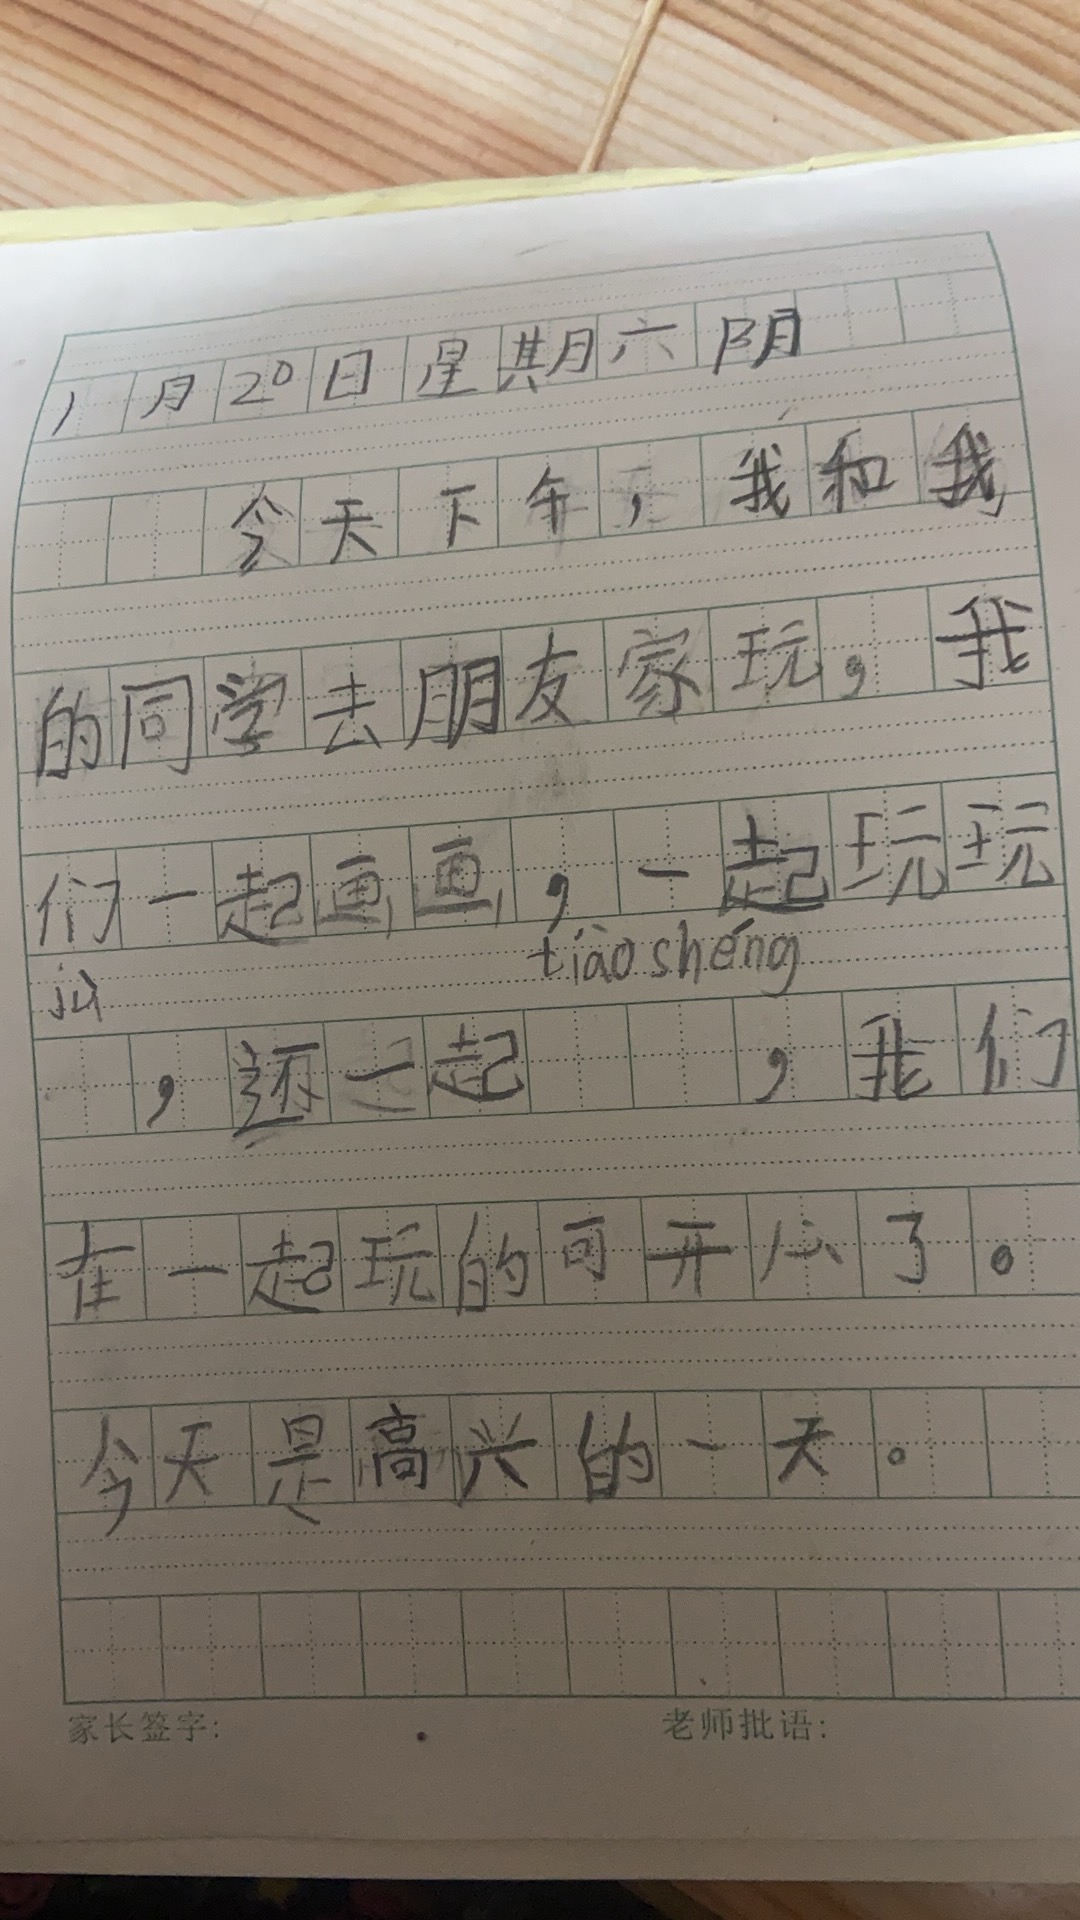 1月20日星期六 阴
今天下午，我和我
的同学去朋友家玩，我
们一起画画，一起玩玩
jù tiào shéng
，还一起 ，我们
在一起玩的可开心了。
今天是高兴的一天。
家长签字: 老师批语: